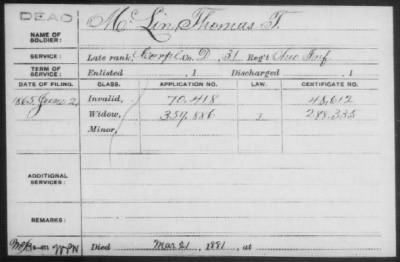 DEAD
NAME OF SOLDIER: McLin, Thomas T.
SERVICE: Late rank, Corpl Co. D, 31 Reg't Ohio Inf
TERM OF SERVICE: Enlisted , 1 Discharged , 1
DATE OF FILING. CLASS. APPLICATION NO. LAW. CERTIFICATE NO.
1865 June 2, Invalid, 70,418 48,612
Widow, 354,886 288,335
Minor,
ADDITIONAL SERVICES:
REMARKS:
Died Mar 21, 1881, at